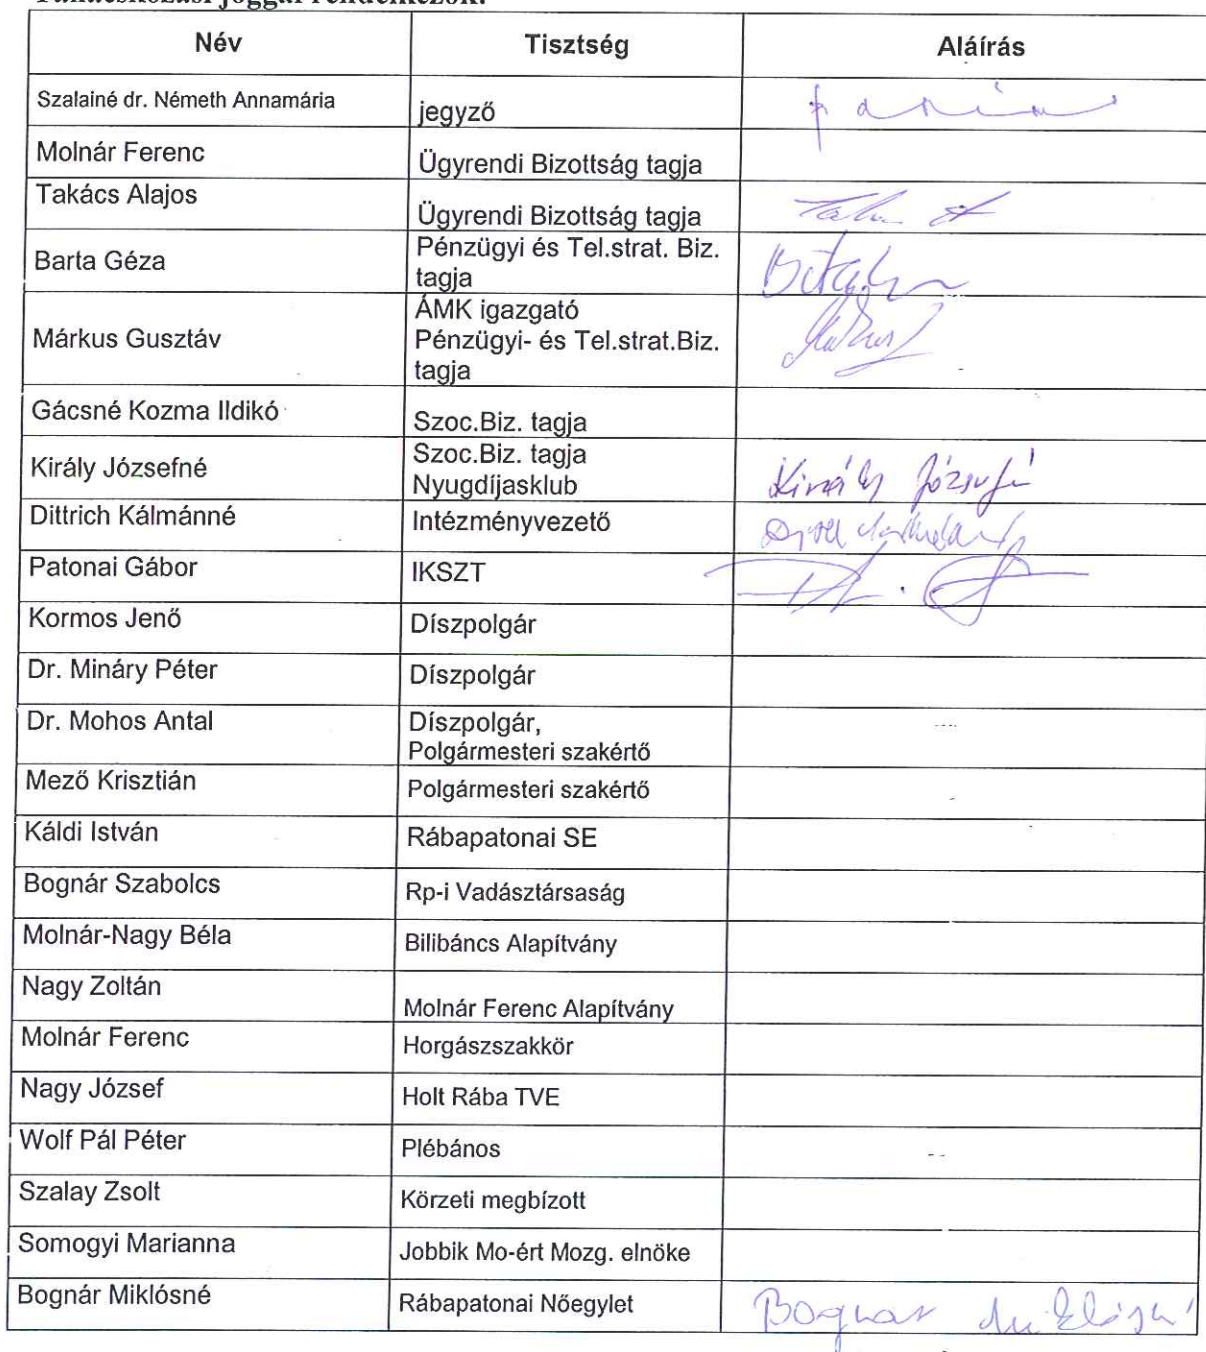 Tanácskozási joggal rendelkezők:
Név Tisztség Aláírás
Szalainé dr. Németh Annamária jegyző
Molnár Ferenc Ügyrendi Bizottság tagja
Takács Alajos Ügyrendi Bizottság tagja
Barta Géza Pénzügyi és Tel.strat. Biz.
tagja
Márkus Gusztáv ÁMK igazgató
Pénzügyi- és Tel.strat.Biz.
tagja
Gácsné Kozma Ildikó Szoc.Biz. tagja
Király Józsefné Szoc.Biz. tagja Király Józsefné
Nyugdíjasklub
Dittrich Kálmánné Intézményvezető
Patonai Gábor IKSZT
Kormos Jenő Díszpolgár
Dr. Mináry Péter Díszpolgár
Dr. Mohos Antal Díszpolgár,
Polgármesteri szakértő
Mező Krisztián Polgármesteri szakértő
Káldi István Rábapatonai SE
Bognár Szabolcs Rp-i Vadásztársaság
Molnár-Nagy Béla Bilibáncs Alapítvány
Nagy Zoltán Molnár Ferenc Alapítvány
Molnár Ferenc Horgászszakkör
Nagy József Holt Rába TVE
Wolf Pál Péter Plébános
Szalay Zsolt Körzeti megbízott
Somogyi Marianna Jobbik Mo-ért Mozg. elnöke
Bognár Miklósné Rábapatonai Nőegylet Bognár Miklósné